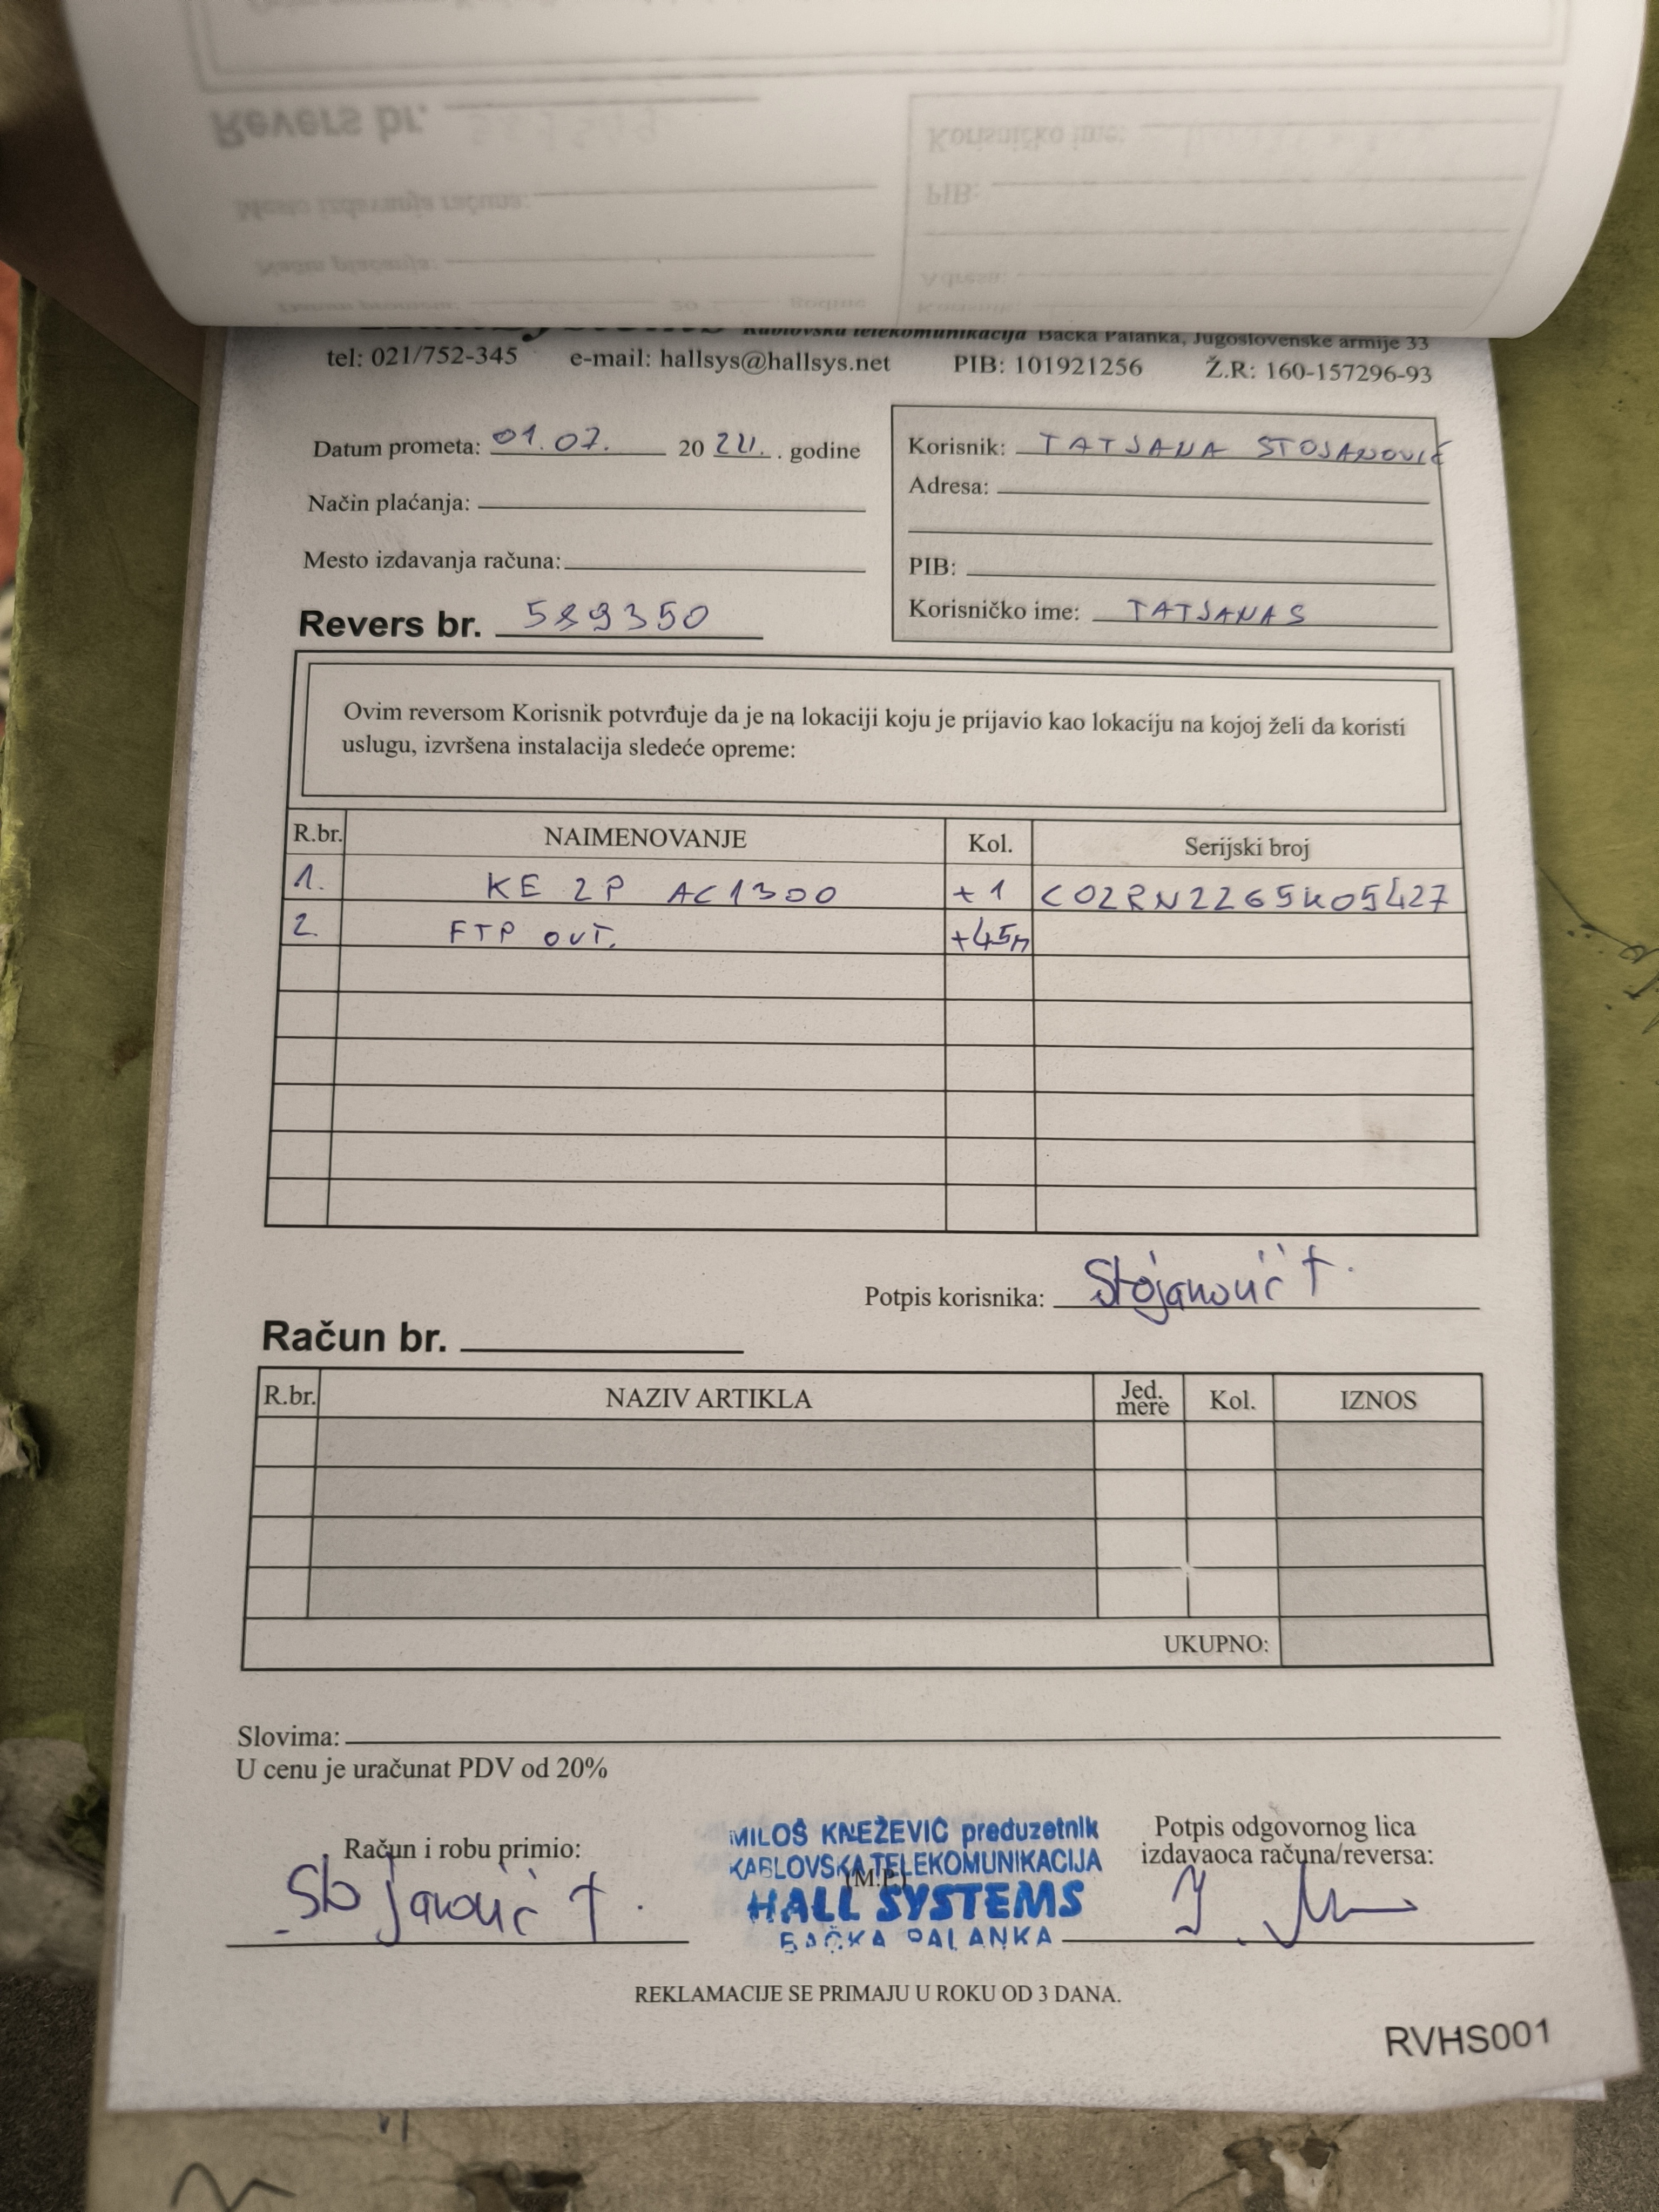 Kablovska telekomunikacija Bačka Palanka, Jugoslovenske armije 33
tel: 021/752-345 e-mail: hallsys@hallsys.net PIB: 101921256 Ž.R: 160-157296-93
Datum prometa: 01.07. 20 24. . godine
Način plaćanja:
Mesto izdavanja računa:
Revers br. 589350
Korisnik: TATJANA STOJANOVIĆ
Adresa:
PIB:
Korisničko ime: TATJANAS
Ovim reversom Korisnik potvrđuje da je na lokaciji koju je prijavio kao lokaciju na kojoj želi da koristi
uslugu, izvršena instalacija sledeće opreme:
R.br. NAIMENOVANJE Kol. Serijski broj
1. KE 2P AC1300 +1 C02RN2265K05427
2. FTP OUT. +45m
Potpis korisnika: Stojanović T.
Račun br.
R.br. NAZIV ARTIKLA Jed. mere Kol. IZNOS
UKUPNO:
Slovima:
U cenu je uračunat PDV od 20%
Račun i robu primio:
Stojanović T.
MILOŠ KNEŽEVIĆ preduzetnik
KABLOVSKA TELEKOMUNIKACIJA
(M.P.)
HALL SYSTEMS
BAČKA PALANKA
Potpis odgovornog lica
izdavaoca računa/reversa:
REKLAMACIJE SE PRIMAJU U ROKU OD 3 DANA.
RVHS001
Revers br.
Korisničko ime:
Mesto izdavanja računa:
PIB:
Način plaćanja:
Adresa: